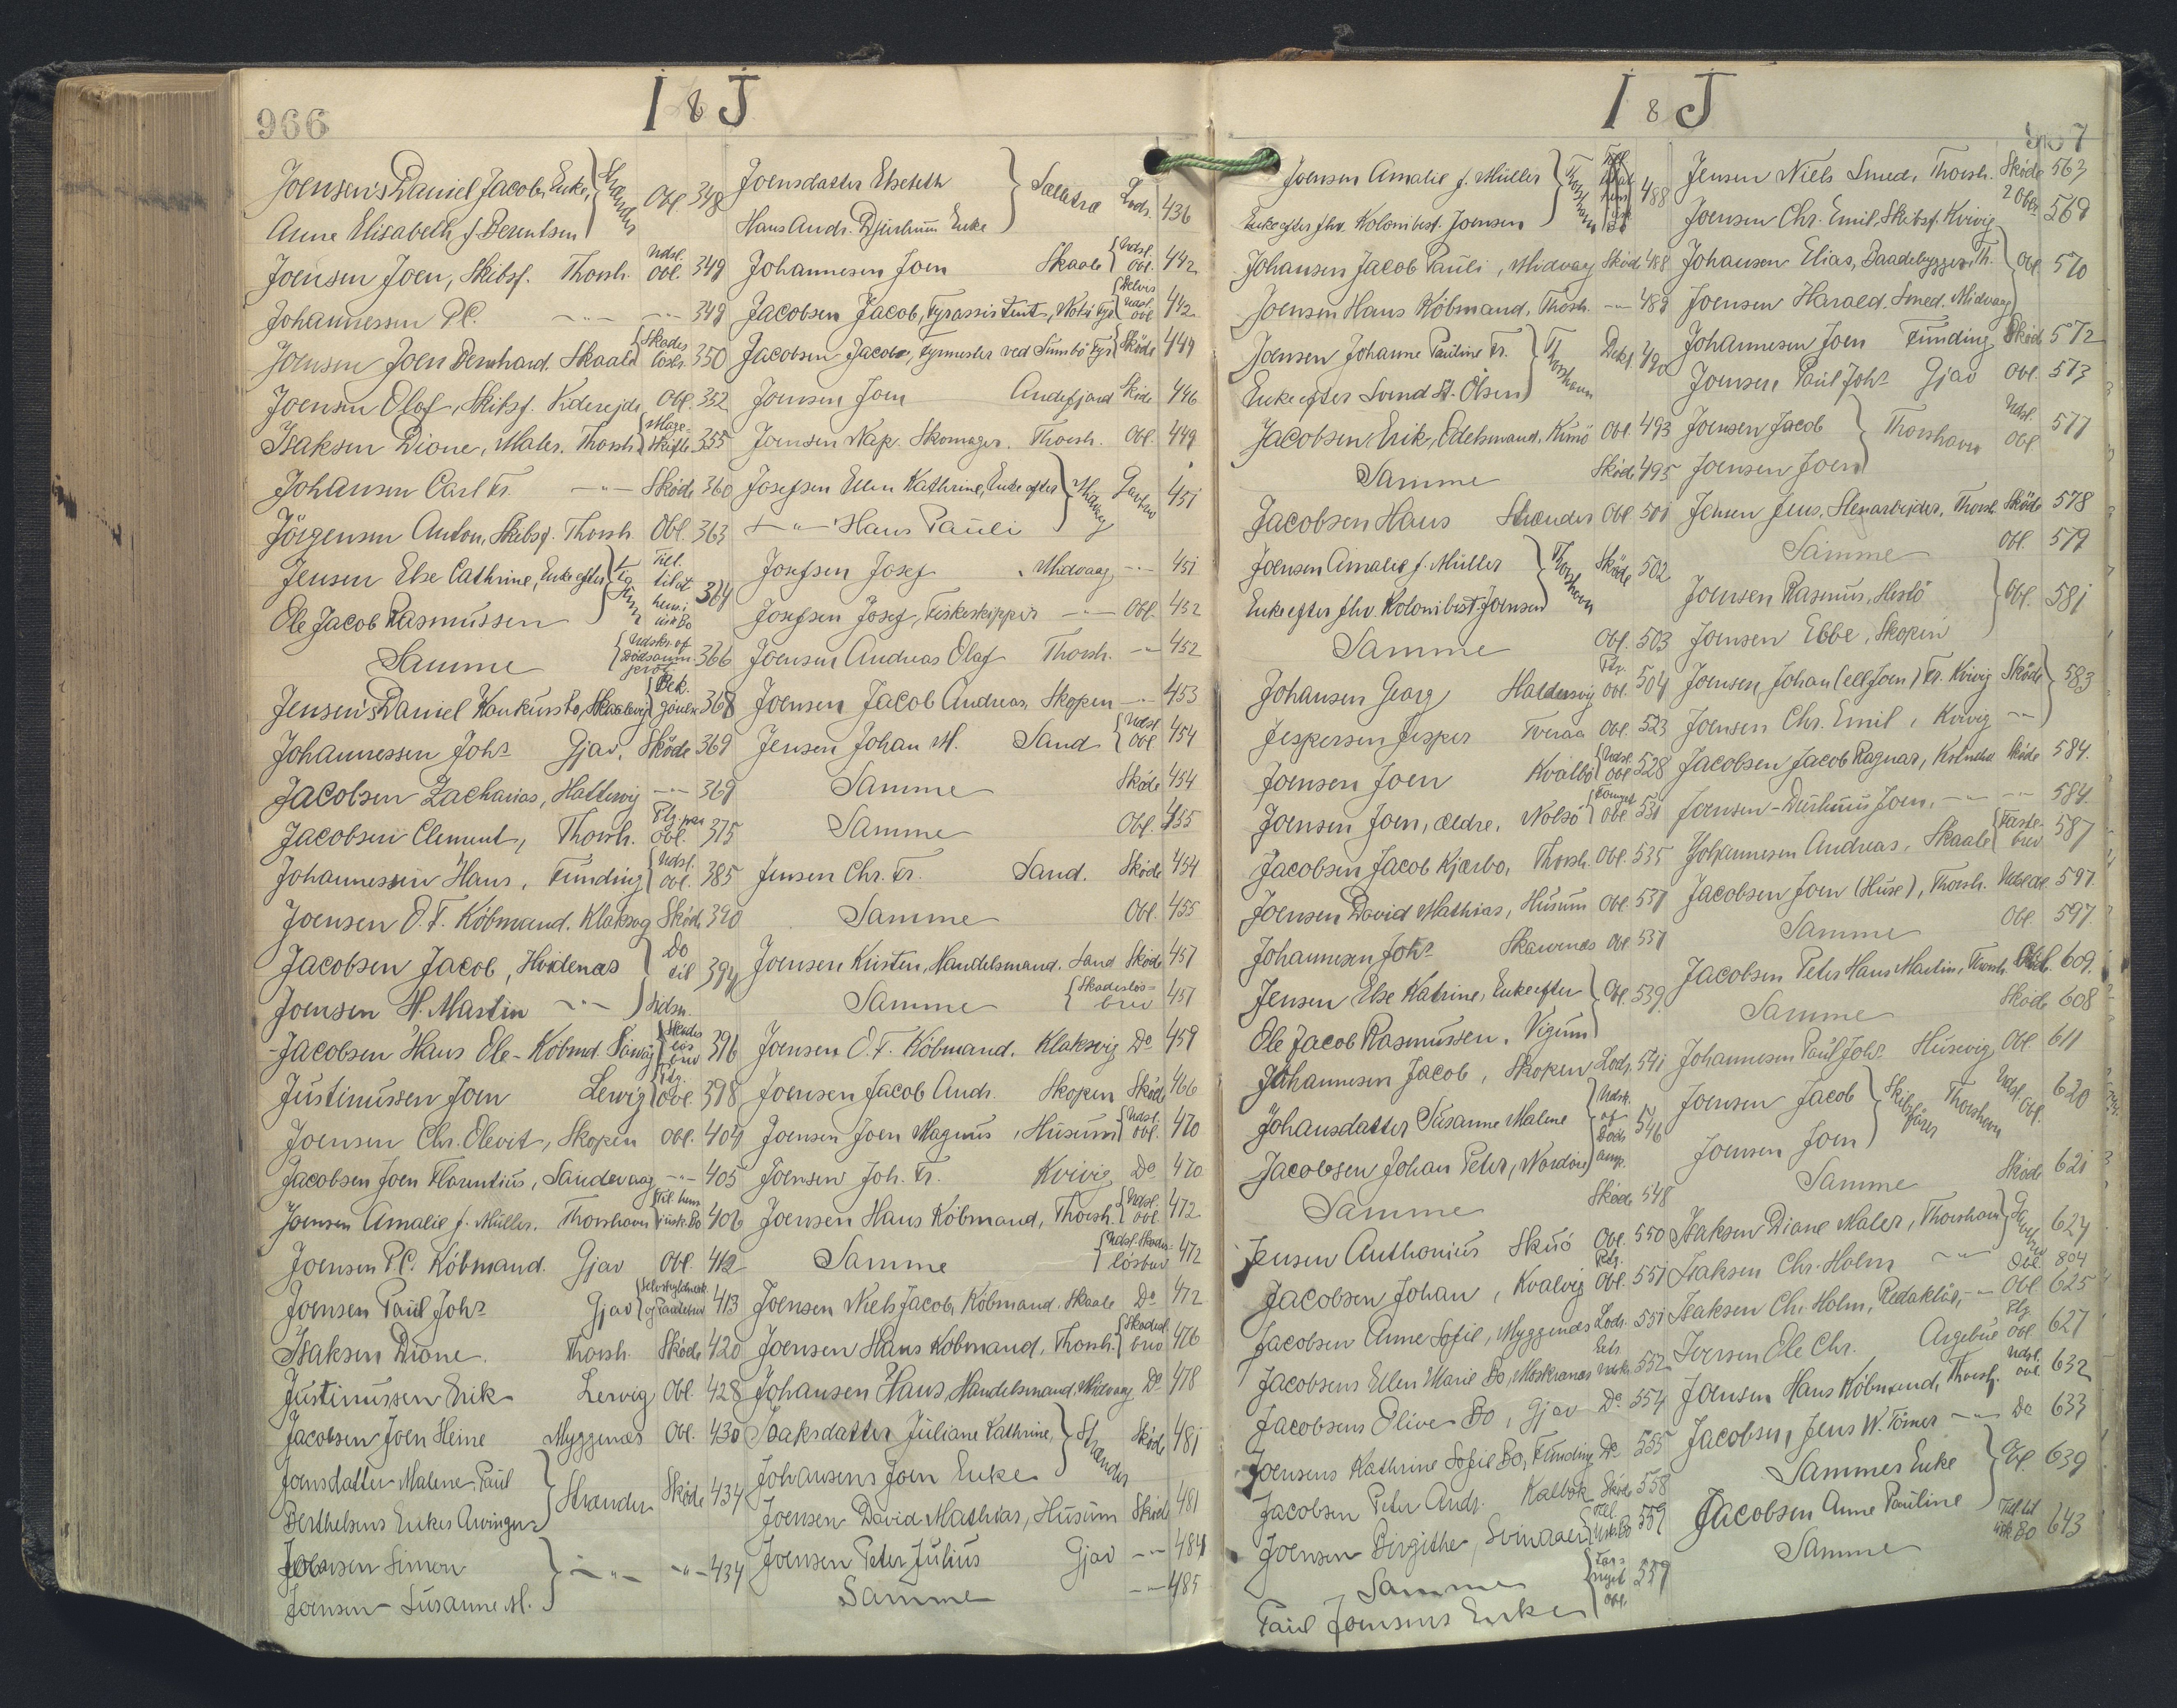 966
I & J
Joensen's Daniel Jacob, Enke, Strænder Obl. 348
Anne Elisabeth f. Berentsen
Joensen Joen, Skibsf. Thorsh. Udsl. Obl. 349
Johannessen P.C. -"- -"- 349
Joensen Joen Bernhard. Skaale Skadeslösbr. 350
Joensen Olof, Skibsf. Viderejde Obl. 352
Isaksen Dione, Maler. Thorsh. Mageskifte 355
Johansen Carl Fr. -"- Skøde 360
Jörgensen Anton, Skibsf. Thorsh. Obl. 363
Jensen Else Cathrine, Enke efter Till. til at hens. i usk. Bo 364
Ole Jacob Rasmussen
Samme Udskr. af Dödsanm. prot 366
Jensen's Daniel Konkursbo, Skaalevig 368
Johannessen Johs Gjov. Skøde 369
Jacobsen Zacharias, Hattervig -"- 369
Jacobsen Clement, Thorsh. Obl. 375
Johannessen Hans, Funding Udsl. obl. 385
Joensen O.F. Köbmand. Klaksvg Skøde 390
Jacobsen Jacob, Hvidenæs Do til 394
Joensen H. Martin -"-
Jacobsen Hans Ole - Købmd. Skadeslösbrev 396
Justinussen Joen Lervig Obl. 398
Joensen Chr. Olevit, Skopen Obl. 404
Jacobsen Joen Florentius, Sandevaag -"- 405
Joensen Amalie f. Müller. Thorshavn Til. hens i usk. Bo 406
Joensen P.C. Köbmand. Gjov Obl. 412
Joensen Paul Johs Gjov og Pantebrev 413
Isaksen Dione. Thorsh. Skøde 420
Justinussen Erik Lervig Obl. 428
Jacobsen Joen Heine Myggenæs Obl. 430
Joensdatter Malene, Paul Strænder Skøde 434
Berthelsens Enkes Arvinger
Joensen Simon -"- -"- 434
Joensen Susanne M.
Joensdatter Elsebeth Saltnæ Lodr. 436
Hans Andr. Djurhuus Enke
Johannesen Joen Skaale Udsl. Obl. 442
Jacobsen Jacob, Fyrassistent, Nolsö Fyr Delvis Udsl. obl. 442
Jacobsen Jacob, Fyrmester ved Sumbö Fyr Skøde 444
Joensen Joen Andefjord Skøde 446
Joensen Nap. Skomager. Thorsh. Obl. 449
Josefsen Ellen Kathrine, Enke efter Midvaag 451
-"- Hans Pauli
Josefsen Josef, Midvaag -"- 451
Josefsen Josef, Fiskeskipper -"- Obl. 452
Joensen Andreas Olaf Thorsh. -"- 452
Joensen Jacob Andreas, Skopen -"- 453
Jensen Johan M. Sand Udsl. Obl 454
Samme Skøde 454
Samme Obl. 455
Jensen Chr. Fr. Sand. Skøde 454
Samme Obl. 455
Joensen Kristen, Handelsmand. Sand Skøde 457
Samme Skadeslösbrev 457
Joensen O.F. Köbmand. Klaksvig Do 459
Joensen Jacob Andr. Skopen Skøde 466
Joensen Joen Magnus, Husum Udsl. obl. 470
Joensen Joh. Fr. Kvivig Do 470
Joensen Hans Købmand, Thorsh. Udsl. obl. 472
Samme Udsl. Skadeslösbrev 472
Joensen Niels Jacob, Köbmand. Skaale Do 472
Joensen Hans Købmand, Thorsh. Skadesl. brev 476
Johansen Hans, Handelsmand. Midvaag Do 478
Isaksdatter Juliane Kathrine, Strænder Skøde 481
Johansens Joen Enke
Joensen David Mathias, Husum Skøde 481
Joensen Peter Julius Gjov -"- 484
Samme -"- 485
I & J
967
Joensen Amalie f. Müller Thorshavn 488
Enke efter fhv. Kolonibest. Joensen
Johansen Jacob Pauli, Midvaag Skøde 488
Joensen Hans Köbmand, Thorsh. -"- 489
Joensen Johanne Pauline Fr. Thorshavn Dekl. 490
Enke efter Svend St. Olsen
Jacobsen, Erik, Edelsmand. Kunö Obl. 493
Samme Skøde 495
Jacobsen Hans Strænder Obl 501
Joensen Amalie f. Müller Thorshavn Skøde 502
Enke efter fhv. Kolonibest. Joensen
Samme Obl. 503
Johansen Georg Haldersvig Obl. 504
Jespersen Jesper Tveraa Obl. 523
Joensen Joen Kvalbö Udsl. obl 528
Joensen Joen, ældre, Nolsö Fornyet obl. 531
Jacobsen Jacob Kjærbo, Thorsh. Obl. 535
Joensen David Mathias, Husum Obl. 537
Johannesen Johs Skarvenæs Obl 537
Jensen Else Katrine, Enke efter Obl. 539
Ole Jacob Rasmussen, Vigum
Johannesen Jacob, Skopen Lodr. 541
Johansdatter Susanne Malene Udsk. af Döds anm. 546
Jacobsen Johan Peter, Nordöre
Samme Skøde 548
Jensen Anthonius Skuö Obl. 550
Jacobsen Johan, Kvalvig Obl. 551
Jacobsen Anne Sofie, Myggenæs Lodr. 551
Jacobsens Ellen Marie Bo, Moskranæs 552
Jacobsens Olive Bo, Gjov Do 554
Joensens Kathrine Sofie Bo, Funding Do 555
Jacobsen Peter Andr. Kalbak Skøde 558
Joensen Birgithe, Svinaaer Till. Usk. Bo 559
Samme Fornyet obl. 559
Paul Joensens Enke
Jensen Niels Smed, Thorsh. Skøde 563
Joensen Chr. Emil. Skibsf. Kvivig 2 Obl. 569
Johansen Elias, Baadebygger, Th. Obl. 570
Joensen Harald. Smed, Midvaag
Johannesen Joen Funding Skøde 572
Joensen Paul Johs Gjov Obl. 573
Joensen Jacob Thorshavn Udsl. Obl. 577
Joensen Joen
Jensen Jens, Stenarbejder, Thorsh. Skøde 578
Samme Obl. 579
Joensen Rasmus, Hestö Obl. 581
Joensen Ebbe, Skopen
Joensen Johan (ell Joen) Fr. Kvivig Skøde 583
Joensen Chr. Emil, Kvivig -"-
Jacobsen Jacob Ragnar, Skøde 584.
Joensen-Durhuus Joen, -"- -"- 584.
Johannesen Andreas, Skaale Fæstebrev 587
Jacobsen Joen (Huse), Thorsh. 597
Samme Obl. 597
Jacobsen Peter Hans Martin, Thorsh. Obl. 609.
Samme Skøde 608
Johannesen Paul Johs Husevig Obl 611
Joensen Jacob Skibsfører Thorshavn Udsl. Obl. 620
Joensen Joen
Samme Skøde 621
Isaksen Diane Maler, Thorshavn 624
Isaksen Chr. Holm -"- Obl. 804
Isaksen Chr. Holm, Redaktör, -"- Obl 625
Iversen Ole Chr. Argebue Obl 627
Joensen Hans Købmand, Thorsh. Udsl. obl. 632
Jacobsen, Jens W. Tömrer -"- Do 633
Sammes Enke Obl. 639
Jacobsen Anne Pauline
Samme Till. til Usk. Bo 643